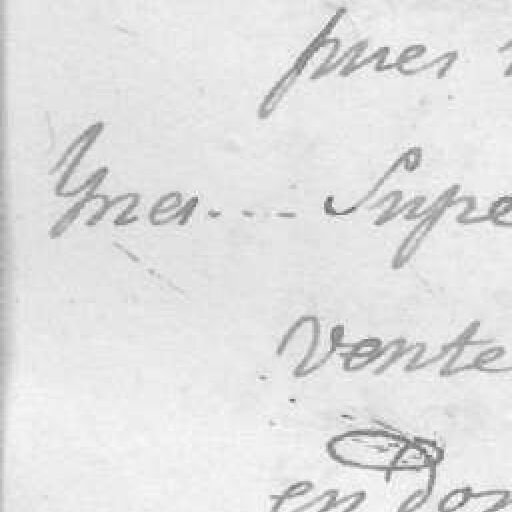 pues
Ynes.... Supe
vente
en don